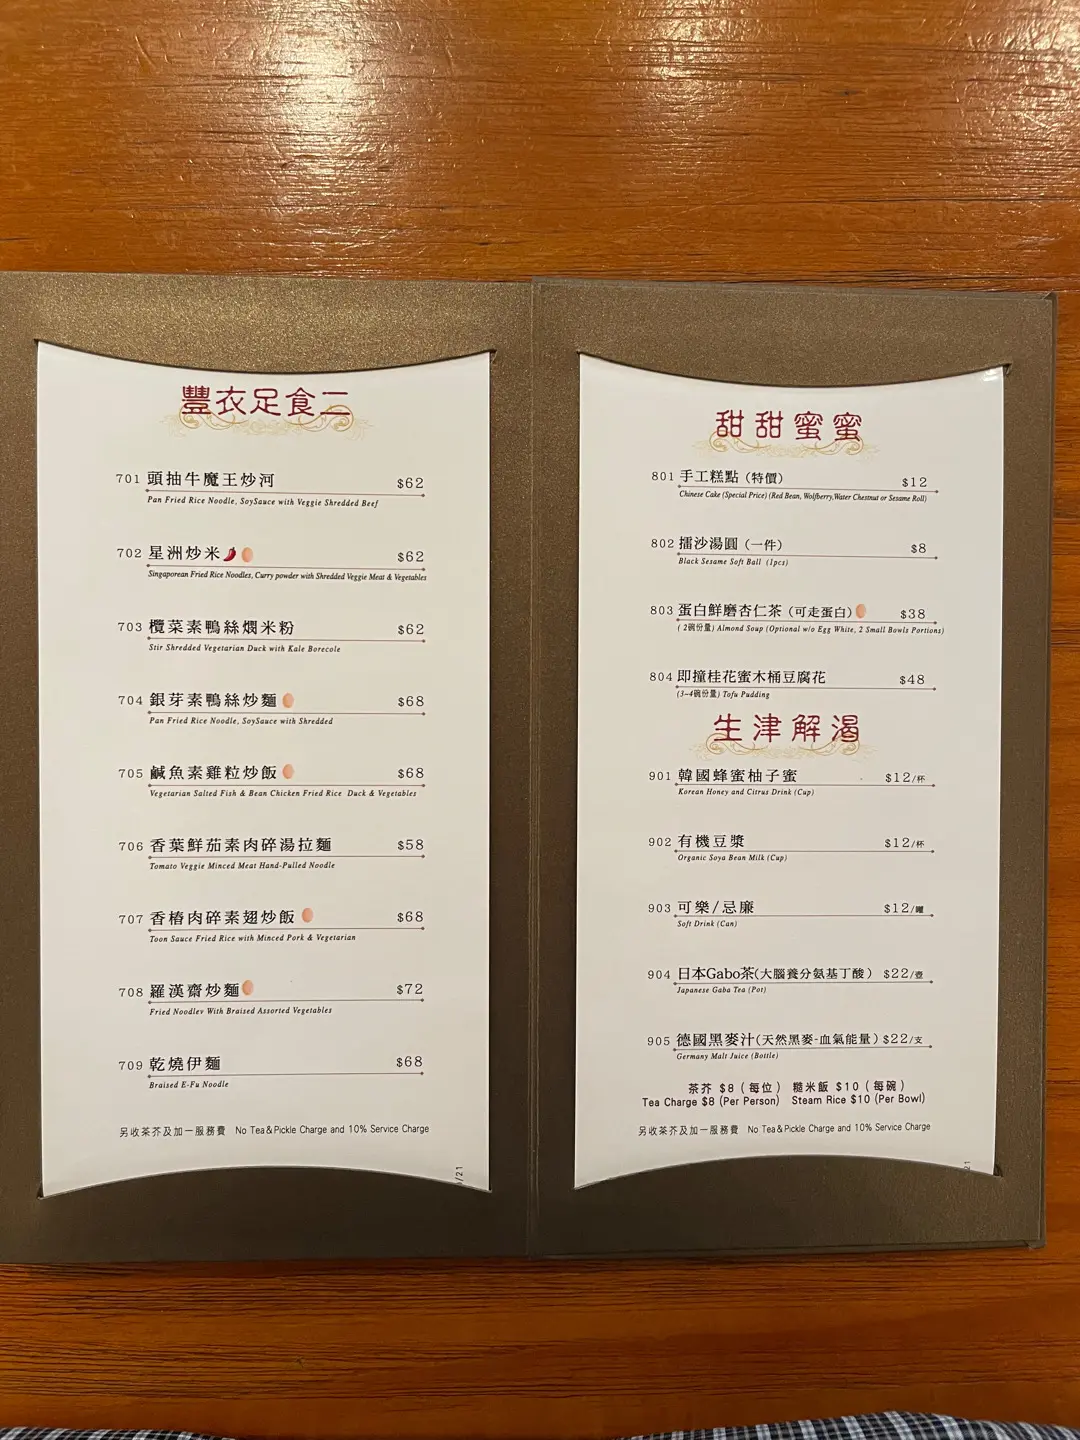 豐衣足食二
701 頭抽牛魔王炒河 $62
Pan Fried Rice Noodle, SoySauce with Veggie Shredded Beef
702 星洲炒米 $62
Singaporean Fried Rice Noodles, Curry powder with Shredded Veggie Meat & Vegetables
703 欖菜素鴨絲燜米粉 $62
Stir Shredded Vegetarian Duck with Kale Borecole
704 銀芽素鴨絲炒麵 $68
Pan Fried Rice Noodle, SoySauce with Shredded
705 鹹魚素雞粒炒飯 $68
Vegetarian Salted Fish & Bean Chicken Fried Rice Duck & Vegetables
706 香葉鮮茄素肉碎湯拉麵 $58
Tomato Veggie Minced Meat Hand-Pulled Noodle
707 香椿肉碎素翅炒飯 $68
Toon Sauce Fried Rice with Minced Pork & Vegetarian
708 羅漢齋炒麵 $72
Fried Noodlev With Braised Assorted Vegetables
709 乾燒伊麵 $68
Braised E-Fu Noodle
另收茶芥及加一服務費 No Tea&Pickle Charge and 10% Service Charge
/21
甜甜蜜蜜
801 手工糕點（特價） $12
Chinese Cake (Special Price) (Red Bean, Wolfberry,Water Chestnut or Sesame Roll)
802 擂沙湯圓（一件） $8
Black Sesame Soft Ball (1pcs)
803 蛋白鮮磨杏仁茶（可走蛋白） $38
( 2碗份量) Almond Soup (Optional w/o Egg White, 2 Small Bowls Portions)
804 即撞桂花蜜木桶豆腐花 $48
(3-4碗份量) Tofu Pudding
生津解渴
901 韓國蜂蜜柚子蜜 $12/杯
Korean Honey and Citrus Drink (Cup)
902 有機豆漿 $12/杯
Organic Soya Bean Milk (Cup)
903 可樂/忌廉 $12/罐
Soft Drink (Can)
904 日本Gabo茶(大腦養分氨基丁酸） $22/壺
Japanese Gaba Tea (Pot)
905 德國黑麥汁(天然黑麥-血氣能量）$22/支
Germany Malt Juice (Bottle)
茶芥 $8（每位） 糙米飯 $10（每碗）
Tea Charge $8 (Per Person) Steam Rice $10 (Per Bowl)
另收茶芥及加一服務費 No Tea&Pickle Charge and 10% Service Charge
21